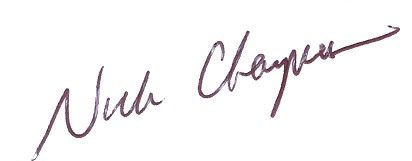 Nick Chapman